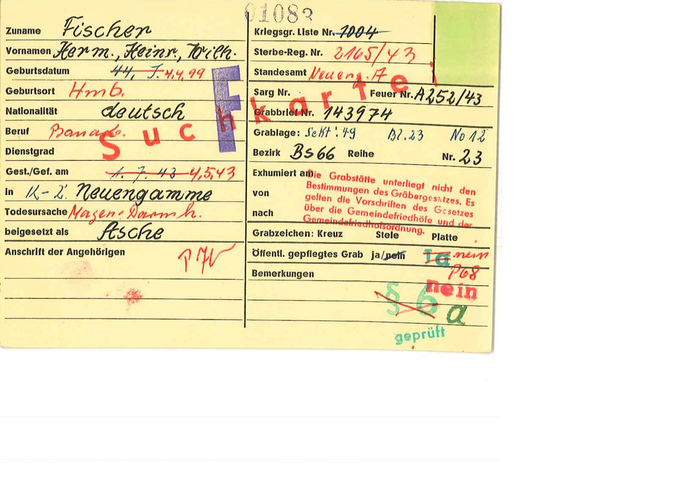 01083
Zuname Fischer
Vornamen Herm., Heinr., Wilh.
Geburtsdatum 44, J. 4,4,99
Geburtsort Hmb.
Nationalität deutsch
Beruf
Dienstgrad
Gest./Gef. am 1. 7. 43 4,5,43
in K-Z. Neuengamme
Todesursache Magen-Darmk.
beigesetzt als Asche
Anschrift der Angehörigen
F
Suchkarte
Kriegsgr. Liste Nr. 1004
Sterbe-Reg. Nr. 2165/43
Standesamt Neueng. A
Sarg Nr. Feuer Nr. A252/43
Grabbrief Nr. 143974
Grablage: Sekt. 49 Bz. 23 No 12
Bezirk Bs66 Reihe Nr. 23
Exhumiert am
von
nach
Die Grabstätte unterliegt nicht den
Bestimmungen des Gräbergesetzes. Es
gelten die Vorschriften des Gesetzes
über die Gemeindefriedhöfe und der
Gemeindefriedhofsordnung.
Grabzeichen: Kreuz Stele Platte
Öffentl. gepflegtes Grab ja/nein ja nein
P68
Bemerkungen nein
§ 6 a
geprüft